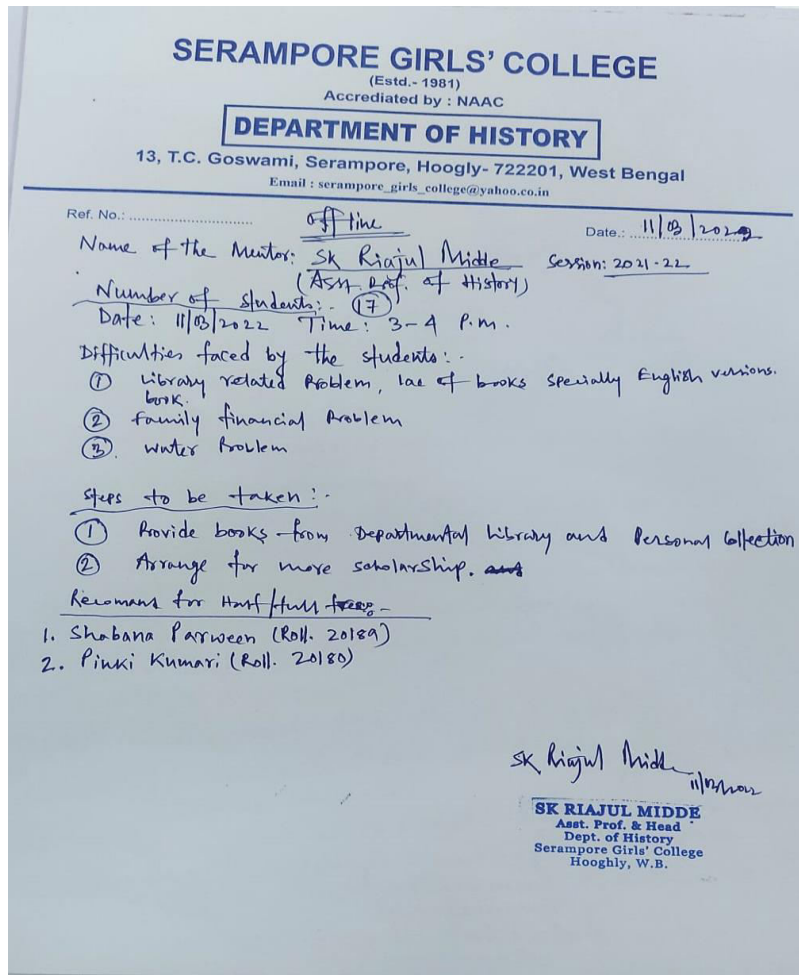 SERAMPORE GIRLS' COLLEGE
(Estd.- 1981)
Accrediated by : NAAC
DEPARTMENT OF HISTORY
13, T.C. Goswami, Serampore, Hoogly- 722201, West Bengal
Email : serampore_girls_college@yahoo.co.in
Ref. No.: ............................ Date.: 11/03/2022
offline
Name of the Mentor: SK Riajul Midde Session: 2021-22
(Asst. Prof. of History)
Number of students:- 17
Date: 11/03/2022 Time: 3-4 P.m.
Difficulties faced by the students:-
① Library related Problem, lac of books specially English versions.
book.
② family financial Problem
③. water Problem
Steps to be taken:-
① Provide books from Departmental Library and Personal Collection
② Arrange for more scholarship.
Recomans for Half/full -
1. Shabana Parween (Roll. 20189)
2. Pinki Kumari (Roll. 20180)
SK Riajul Midde
11/03/2022
SK RIAJUL MIDDE
Asst. Prof. & Head
Dept. of History
Serampore Girls' College
Hooghly, W.B.